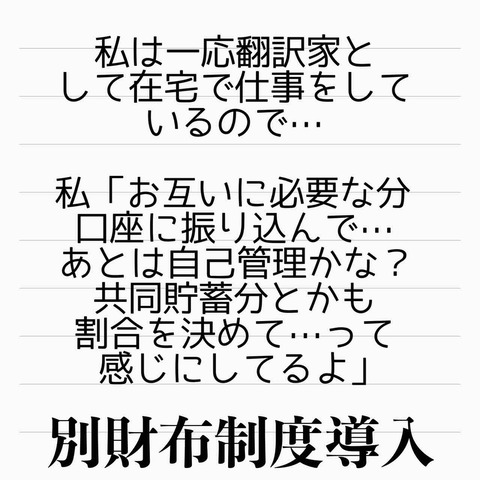 私は一応翻訳家と
して在宅で仕事をして
いるので…
私「お互いに必要な分
口座に振り込んで…
あとは自己管理かな？
共同貯蓄分とかも
割合を決めて…って
感じにしてるよ」
別財布制度導入